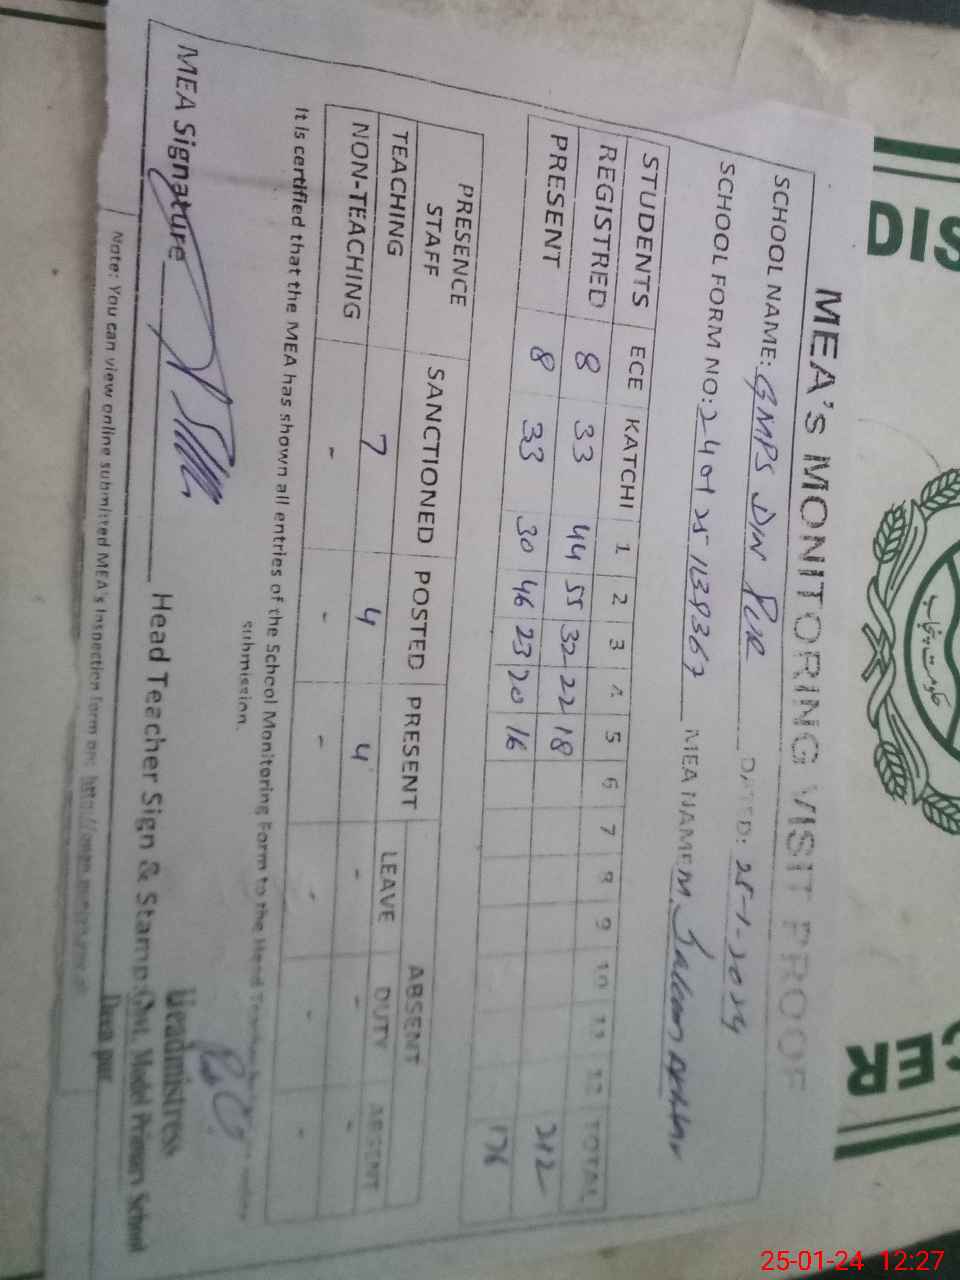 MEA's MONITORING VISIT PROOF
SCHOOL NAME: GMPS DIN PUR DATED: 25-1-2024
SCHOOL FORM NO: MEA NAME M. Saleem Akhtar
STUDENTS ECE KATCHI 1 2 3 4 5 6 7 8 9 10 11 12 TOTAL
REGISTRED 8 33 44 55 32 22 18 212
PRESENT 8 33 30 46 23 20 16 176
PRESENCE STAFF SANCTIONED POSTED PRESENT ABSENT
LEAVE DUTY ABSENT
TEACHING 7 4 4 - - -
NON-TEACHING - - - - - -
It is certified that the MEA has shown all entries of the School Monitoring Form to the Head
submission.
MEA Signature Head Teacher Sign & Stamp:
Headmistress
Govt. Model Primary School
Din pur
Note: You can view online submitted MEA's Inspection form on:
DIS
CER
حکومت پنجاب
25-01-24 12:27